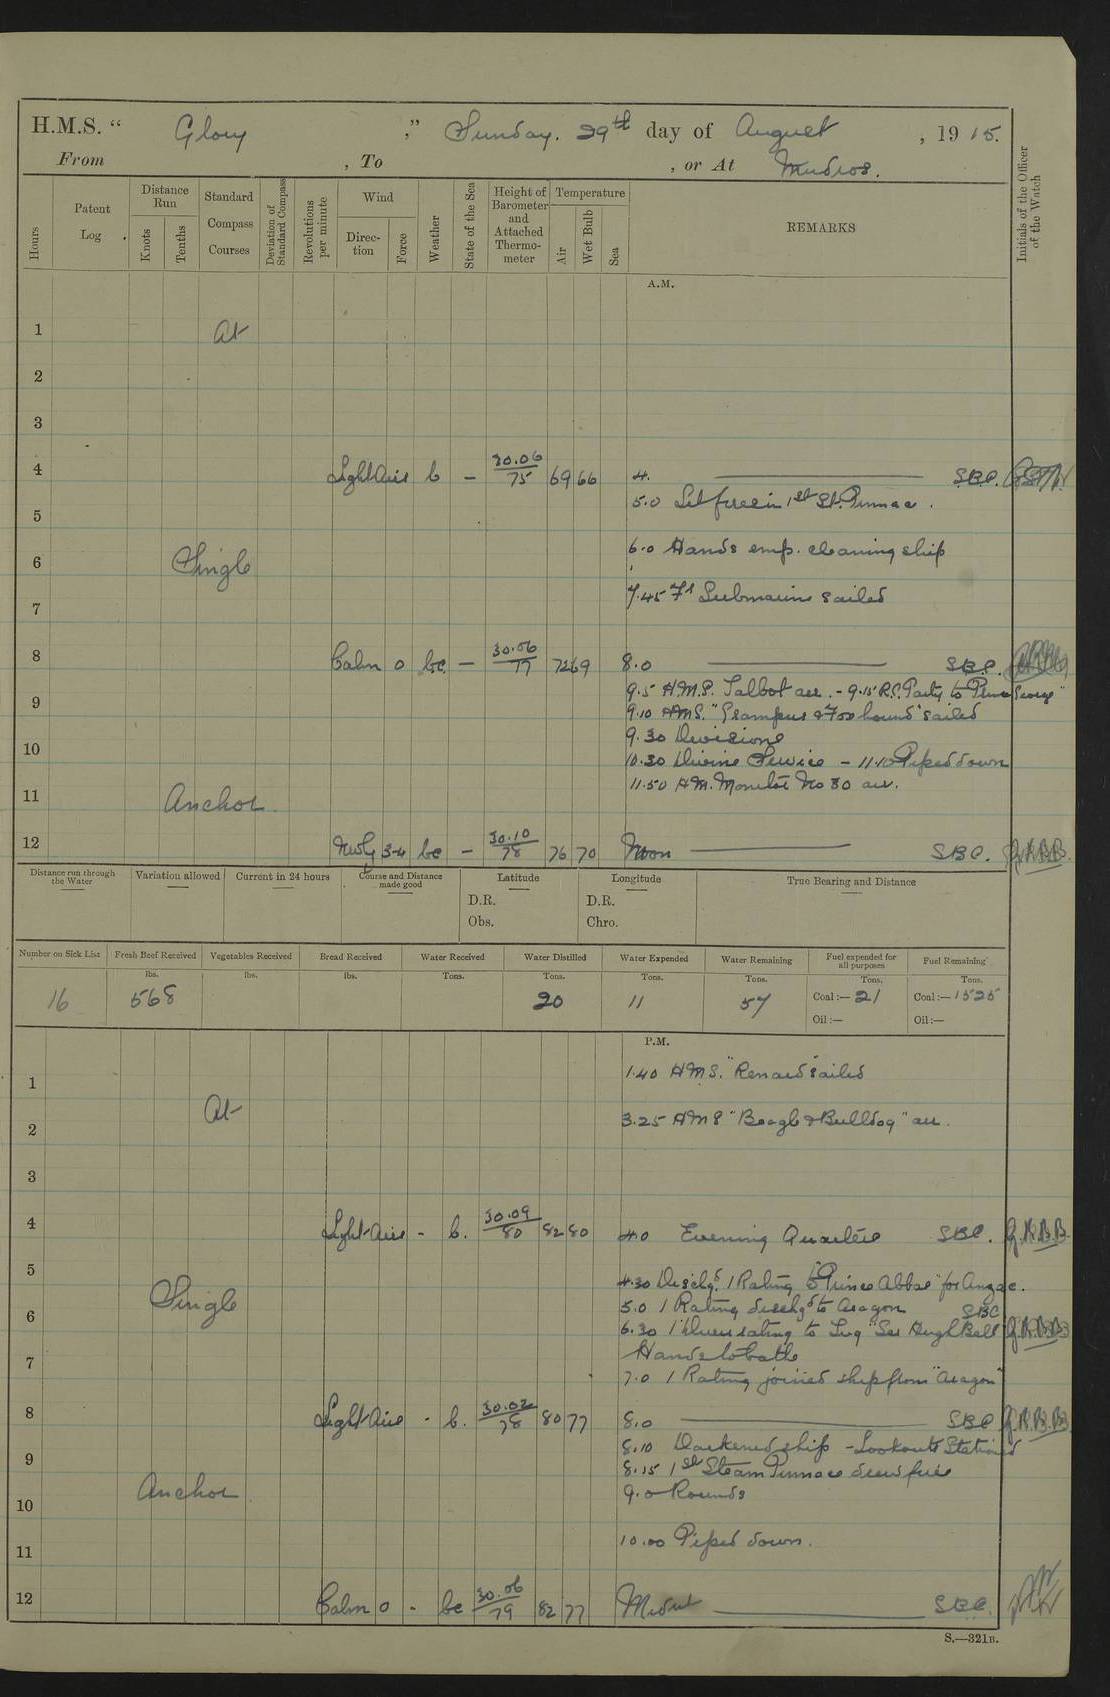 H.M.S. " Glory ," Sunday. 29th day of August , 1915.
From , To , or At Mudros.
Hours
Patent Log
Distance Run
Knots
Tenths
Standard Compass Courses
Deviation of Standard Compass
Revolutions per minute
Wind
Direction
Force
Weather
State of the Sea
Height of Barometer and Attached Thermometer
Temperature
Air
Wet Bulb
Sea
REMARKS
Initials of the Officer of the Watch
A.M.
1 At
2
3
4 Light Airs b — 30.06 / 75 69 66 4. S.B.C.
5 5.0 Lit fires in 1st St. Pinnace.
6 Single 6.0 Hands emp. cleaning ship
7 7.45 Submarine sailed
8 Calm 0 bc — 30.06 / 77 72 69 8.0 S.B.C.
9.5 H.M.S. Talbot arr. - 9.15 R.C. Party to "Prince George"
9 9.10 HMS. "Grampus & Foxhound" sailed
9.30 Divisions
10 10.30 Divine Service - 11.10 Piped down
11 Anchor 11.50 H.M. Monitor No 30 arr.
12 NWly 3-4 bc — 30.10 / 78 76 70 Noon S.B.C.
Distance run through the Water
Variation allowed
Current in 24 hours
Course and Distance made good
Latitude
D.R.
Obs.
Longitude
D.R.
Chro.
True Bearing and Distance
Number on Sick List
Fresh Beef Received
Vegetables Received
Bread Received
Water Received
Water Distilled
Water Expended
Water Remaining
Fuel expended for all purposes
Fuel Remaining
lbs. lbs. lbs. Tons. Tons. Tons. Tons. Tons. Tons.
16 568 20 11 57 Coal:— 21 Coal:— 1525
Oil:— Oil:—
P.M.
1 1.40 H.M.S. "Renard" sailed
2 At 3.25 HMS "Beagle & Bulldog" arr.
3
4 Light Airs - b. 30.09 / 80 82 80 4.0 Evening Quarters SBC. G.R.B.B.
5 4.30 Dischgd. 1 Rating to "Prince Abbas" for Anzac.
Single 5.0 1 Rating dischgd to Aragon SBC
6 6.30 1 rating to Tug "Sir Hugh Bell" G.R.B.B.
7 Hands to bathe
7.0 1 Rating joined ship from "Aragon"
8 Light Airs - b. 30.02 / 78 80 77 8.0 SBC G.R.B.B.
8.10 Darkened ship - Lookouts Stationed
9 8.15 1st Steam Pinnace drew fires
Anchor 9.0 Rounds
10
11 10.00 Piped down.
12 Calm 0 - bc 30.06 / 79 82 77 Midnt S.B.C.
S.—321B.